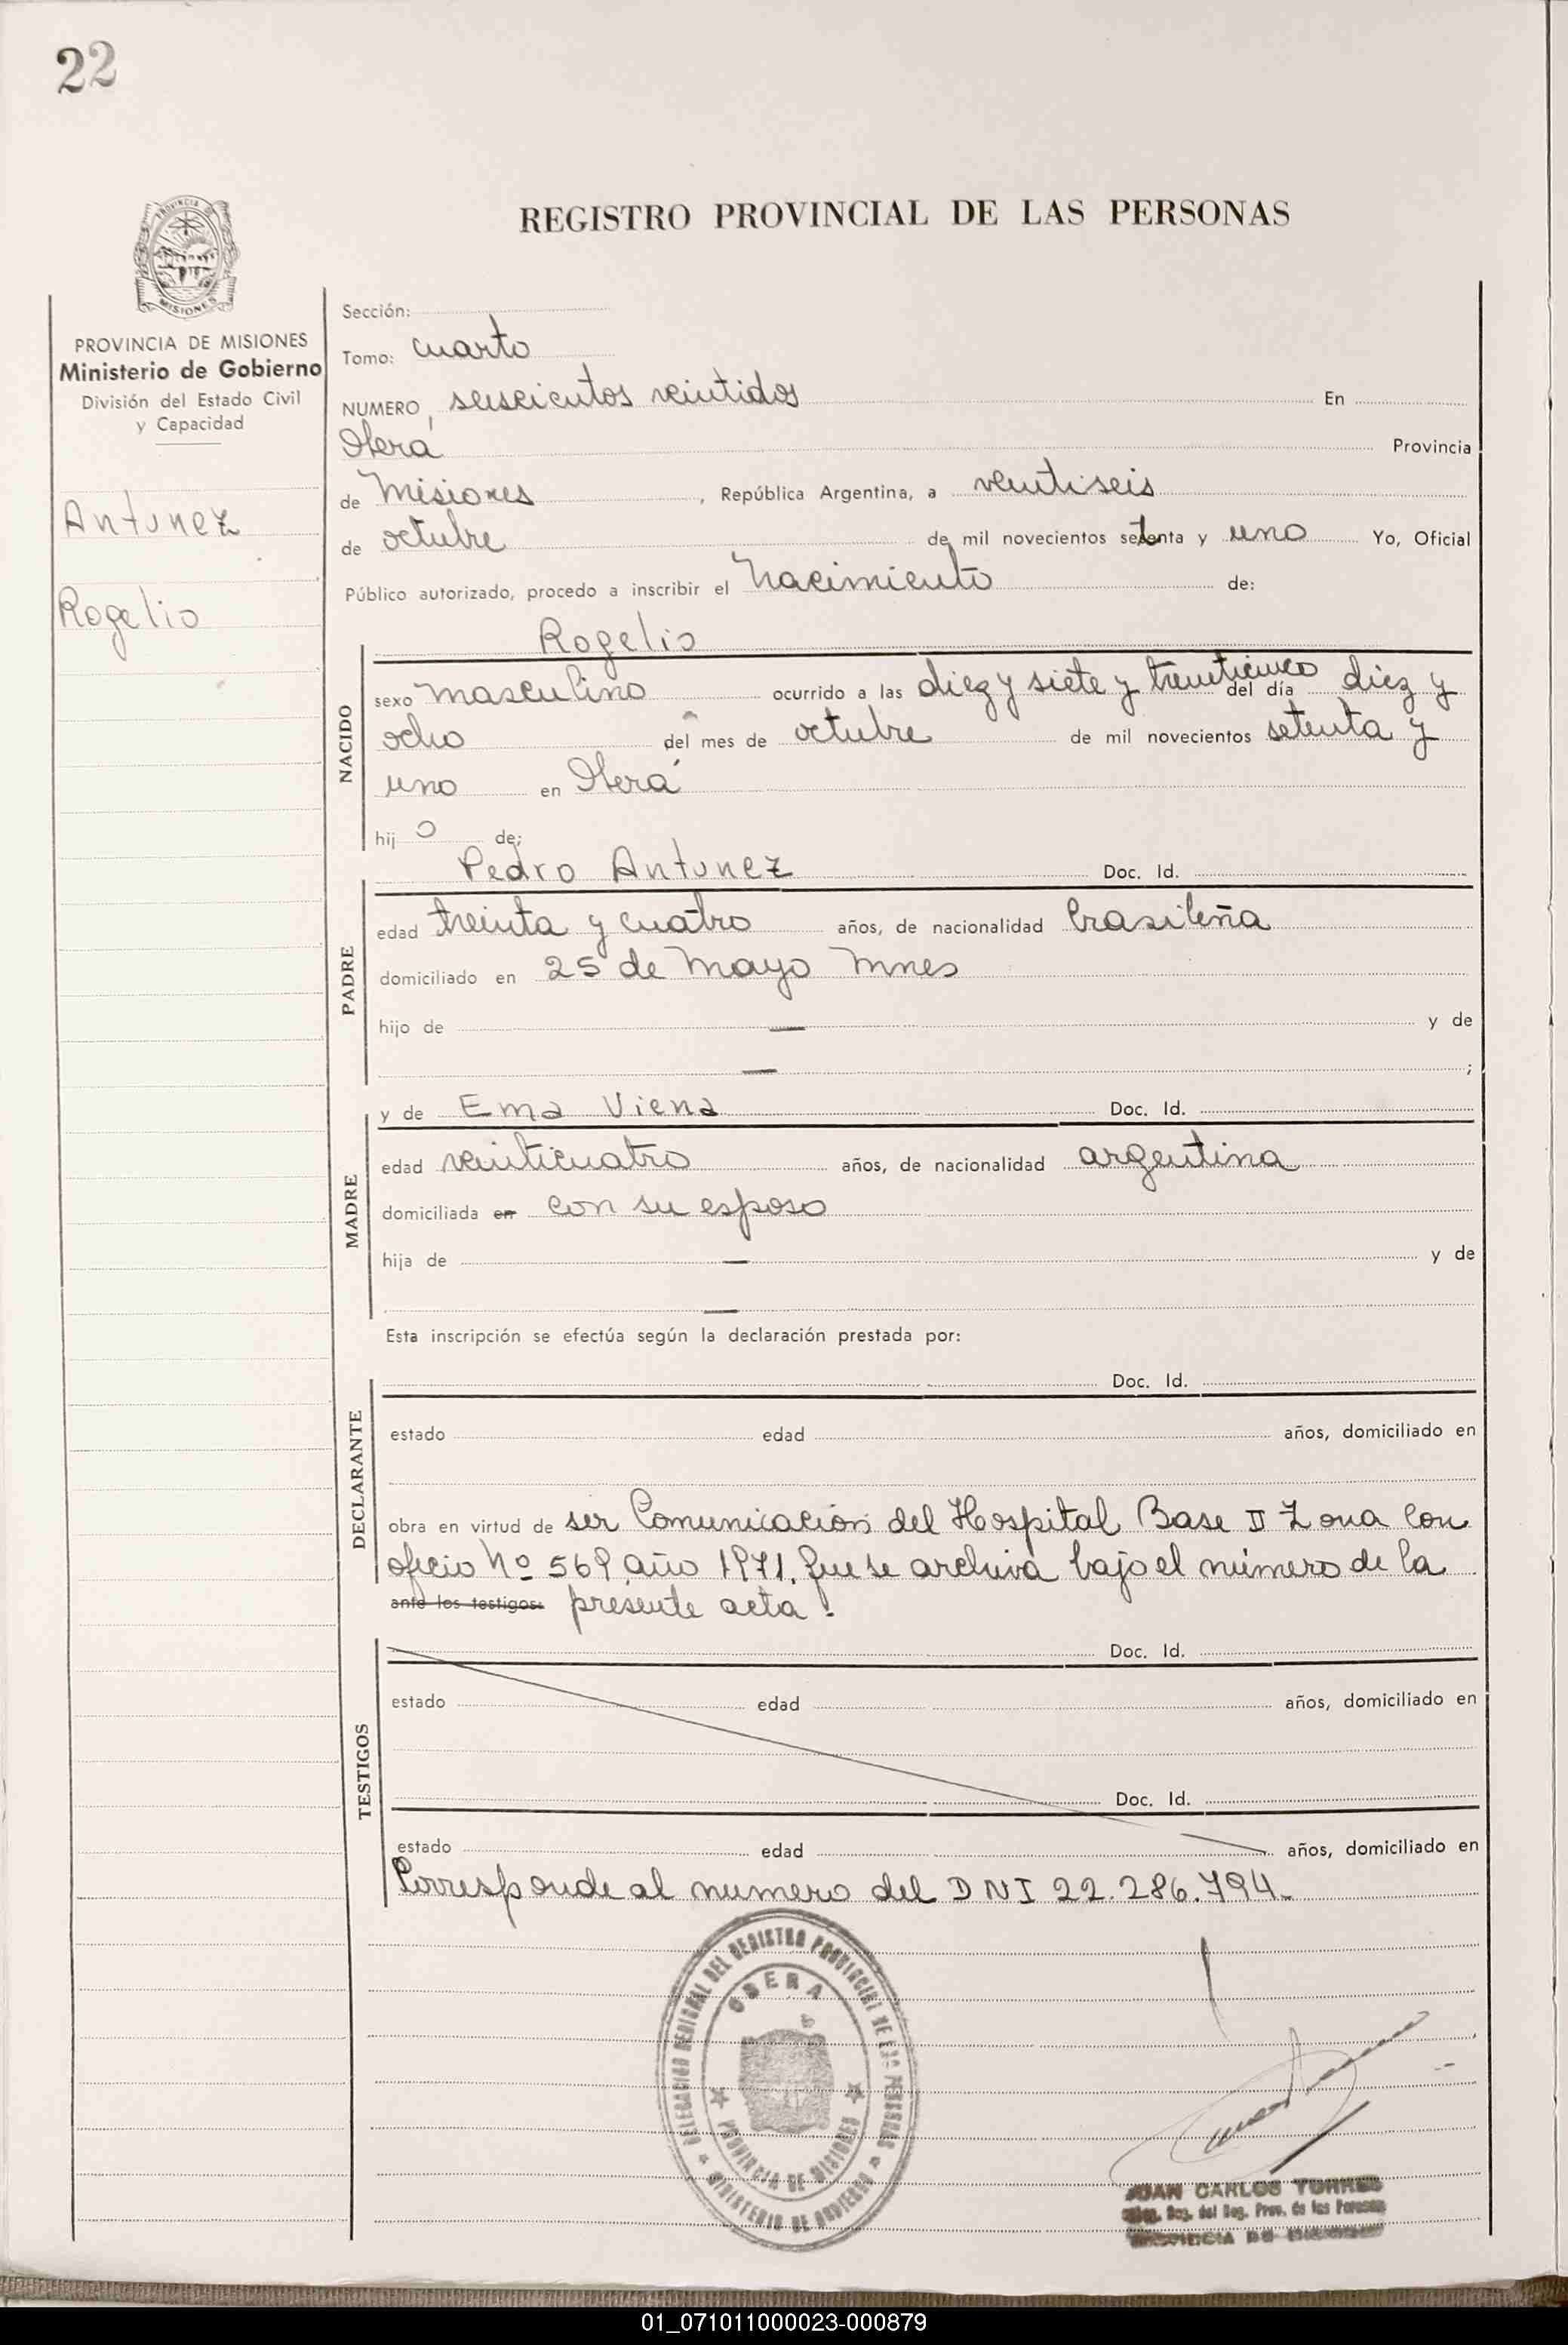 22
REGISTRO PROVINCIAL DE LAS PERSONAS
PROVINCIA
MISIONES
PROVINCIA DE MISIONES
Ministerio de Gobierno
División del Estado Civil
y Capacidad
Antunez
Rogelio
Sección:
Tomo: cuarto
NUMERO, seiscientos veintidos En
Oberá Provincia
de Misiones, República Argentina, a veintiseis
de octubre de mil novecientos setenta y uno Yo, Oficial
Público autorizado, procedo a inscribir el Nacimiento de:
NACIDO
Rogelio
sexo masculino ocurrido a las diez y siete y treinticinco del día diez y
ocho del mes de octubre de mil novecientos setenta y
uno en Oberá
hij o de;
PADRE
Pedro Antunez Doc. Id.
edad treinta y cuatro años, de nacionalidad brasileña
domiciliado en 25 de Mayo Mnes
hijo de — y de
— ;
MADRE
y de Ema Viena Doc. Id.
edad veinticuatro años, de nacionalidad argentina
domiciliada en con su esposo
hija de — y de
—
Esta inscripción se efectúa según la declaración prestada por:
DECLARANTE
Doc. Id.
estado edad años, domiciliado en
obra en virtud de ser Comunicación del Hospital Base II Zona Con
oficio Nº 569 año 1971. que se archiva bajo el número de la
ante los testigos: presente acta.
TESTIGOS
Doc. Id.
estado edad años, domiciliado en
Doc. Id.
estado edad años, domiciliado en
Corresponde al numero del DNI 22.286.794.
DELEGACION REGIONAL DEL REGISTRO PROVINCIAL DE LAS PERSONAS
OBERA
PROVINCIA DE MISIONES
MINISTERIO DE GOBIERNO
JUAN CARLOS TORRES
del Reg. Prov. de las Personas
PROVINCIA DE MISIONES
01_071011000023-000879